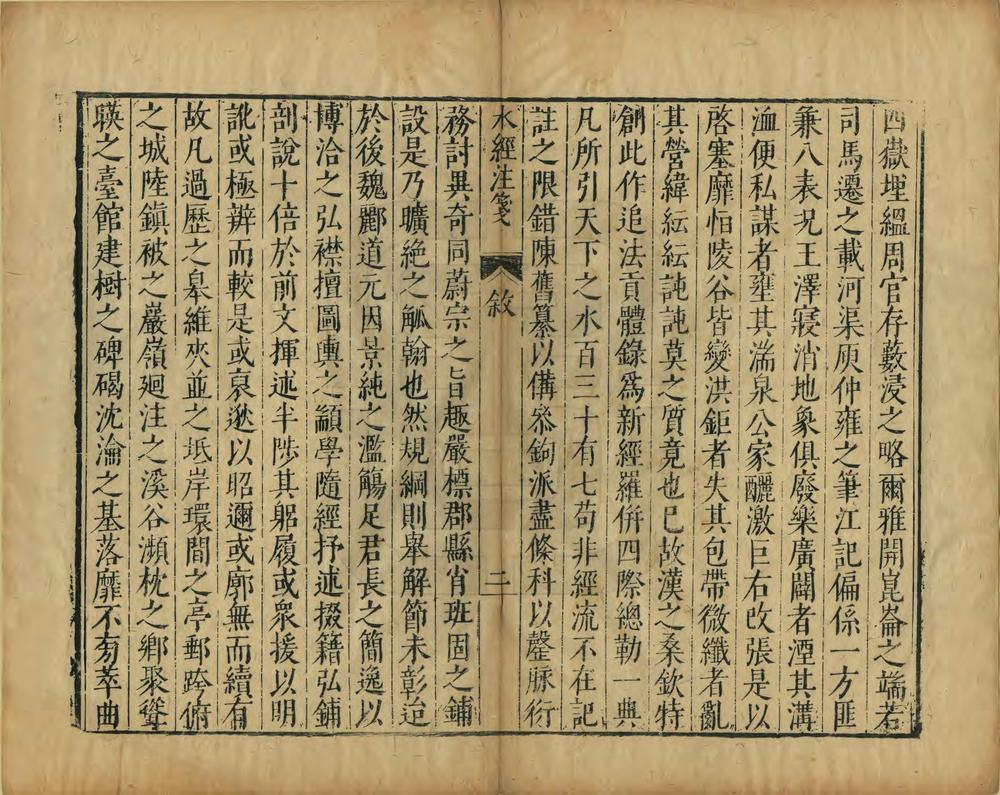 四嶽堙緼周官存藪浸之略爾雅開崑崙之端若
司馬遷之載河渠庾仲雍之筆江記偏係一方匪
兼八表況王澤寢消地象俱廢樂廣闢者湮其溝
洫便私謀者壅其湍泉公家釃激巨右改張是以
啓塞靡恒陵谷皆變洪鉅者失其包帶微纖者亂
其營緯紜紜訰訰莫之質竟也已故漢之桑欽特
創此作追法貢體錄為新經羅併四際總勒一典
凡所引天下之水百三十有七苟非經流不在記
註之限錯陳舊纂以備叅鉤派盡條科以罄脉衍
水經注箋 敘 二
務討異奇同蔚宗之旨趣嚴標郡縣肖班固之鋪
設是乃曠絶之觚翰也然規綱則舉解節未彰迨
於後魏酈道元因景純之濫觴足君長之簡逸以
博洽之弘襟擅圖輿之顓學隨經抒述掇籍弘鋪
剖說十倍於前文揮述半陟其躬履或衆援以明
訛或極辨而較是或裒逖以昭邇或廓無而續有
故凡過歷之皋維夾並之坻岸環間之亭郵跨俯
之城陸鎮被之巖嶺廻注之溪谷瀕枕之鄉聚聳
䁐之臺館建樹之碑碣沈淪之基落靡不旁萃曲